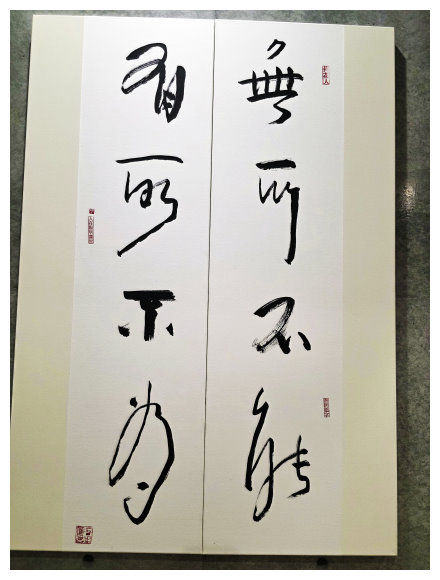 無所不能
有所不為